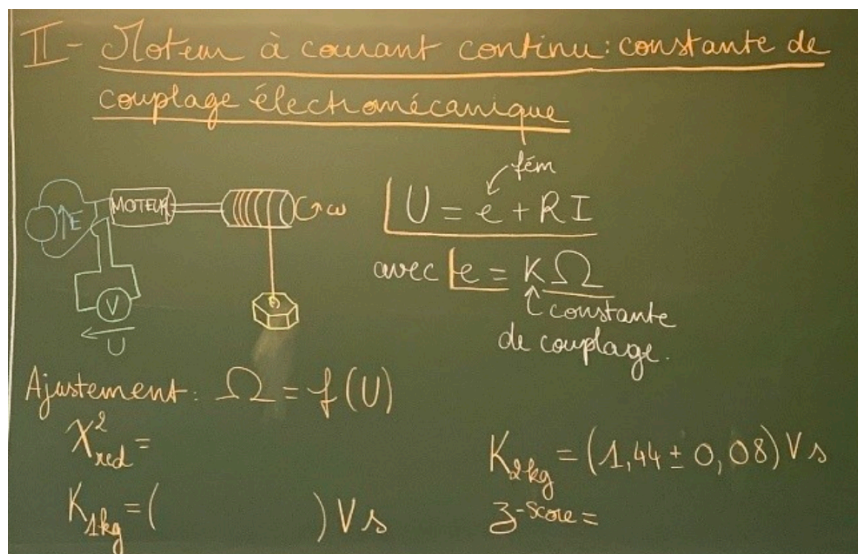 II - Moteur à courant continu : constante de
couplage électromécanique
fém
MOTEUR
E
ω
U = e + RI
avec e = KΩ
V
constante
U
de couplage.
Ajustement : Ω = f(U)
χ²red =
K2kg = (1,44 ± 0,08) V s
K1kg = ( ) V s
z-score =